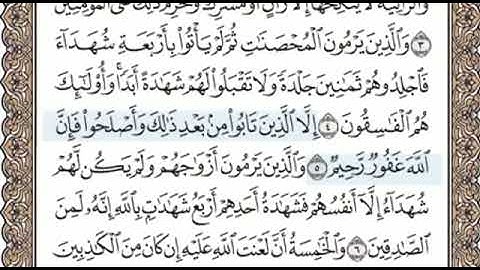 وَالزَّانِيَةُ لَا يَنكِحُهَا إِلَّا زَانٍ أَوْ مُشْرِكٌ وَحُرِّمَ ذَٰلِكَ عَلَى الْمُؤْمِنِينَ
٣ وَالَّذِينَ يَرْمُونَ الْمُحْصَنَاتِ ثُمَّ لَمْ يَأْتُوا بِأَرْبَعَةِ شُهَدَاءَ
فَاجْلِدُوهُمْ ثَمَانِينَ جَلْدَةً وَلَا تَقْبَلُوا لَهُمْ شَهَادَةً أَبَدًا وَأُولَٰئِكَ
هُمُ الْفَاسِقُونَ ٤ إِلَّا الَّذِينَ تَابُوا مِن بَعْدِ ذَٰلِكَ وَأَصْلَحُوا فَإِنَّ
اللَّهَ غَفُورٌ رَّحِيمٌ ٥ وَالَّذِينَ يَرْمُونَ أَزْوَاجَهُمْ وَلَمْ يَكُن لَّهُمْ
شُهَدَاءُ إِلَّا أَنفُسُهُمْ فَشَهَادَةُ أَحَدِهِمْ أَرْبَعُ شَهَادَاتٍ بِاللَّهِ إِنَّهُ لَمِنَ
الصَّادِقِينَ ٦ وَالْخَامِسَةُ أَنَّ لَعْنَتَ اللَّهِ عَلَيْهِ إِن كَانَ مِنَ الْكَاذِبِينَ